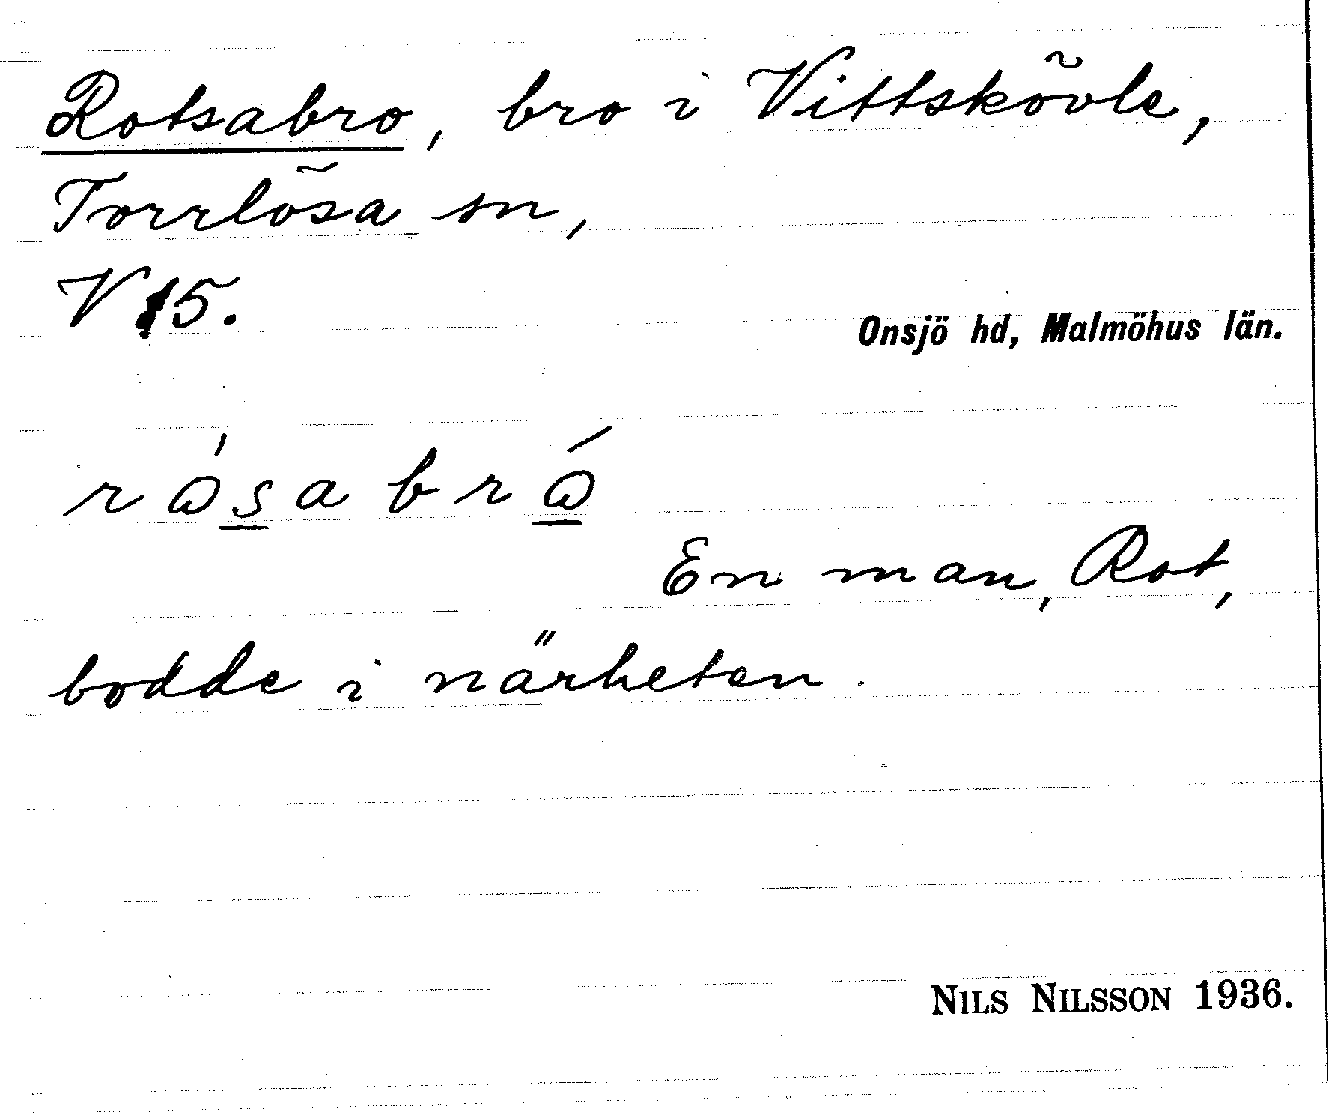 Rotsabro, bro i Vittskövle,
Torrlösa sn,
V 15.
Onsjö hd, Malmöhus län.
rɷ́sabrɷ́
En man, Rot,
bodde i närheten.
NILS NILSSON 1936.